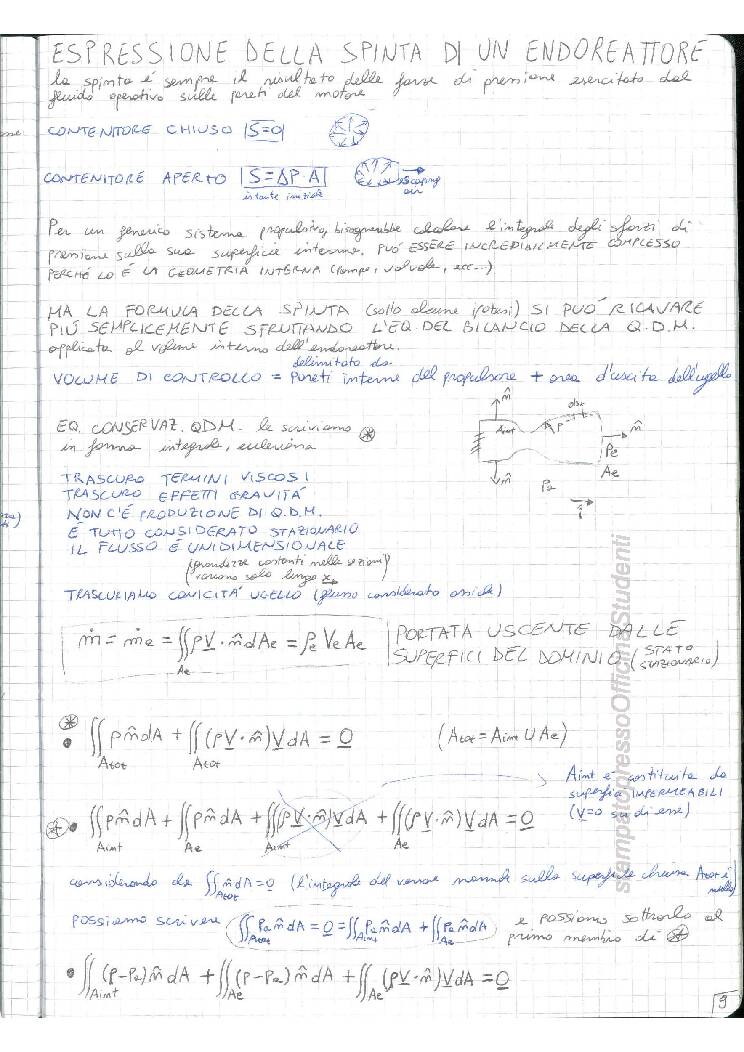 ESPRESSIONE DELLA SPINTA DI UN ENDOREATTORE
la spinta é sempre il risultato delle forze di pressione esercitate dal
fluido operativo sulle pareti del motore
CONTENITORE CHIUSO |S=0|
CONTENITORE APERTO |S=ΔP·A|
istante iniziale
escaping
air
Per un generico sistema propulsivo, bisognerebbe calcolare l'integrale degli sforzi di
pressione sulla sua superficie interna. PUÓ ESSERE INCREDIBILMENTE COMPLESSO
PERCHÉ LO É LA GEOMETRIA INTERNA (pompe, valvole, ecc...)
MA LA FORMULA DELLA SPINTA (sotto alcune ipotesi) SI PUÓ RICAVARE
PIÚ SEMPLICEMENTE SFRUTTANDO L'EQ. DEL BILANCIO DELLA Q.D.M.
applicata al volume interno dell'endoreattore.
delimitato da
VOLUME DI CONTROLLO = pareti interne del propulsore + area d'uscita dell'ugello
EQ. CONSERVAZ. QDM. la scriviamo ⊛
in forma integrale, euleriana
n̂
Aint
P
n̂
Pe
Ae
n̂
Pa
î
TRASCURO TERMINI VISCOSI
TRASCURO EFFETTI GRAVITÁ
NON C'É PRODUZIONE DI Q.D.M.
É TUTTO CONSIDERATO STAZIONARIO
IL FLUSSO É UNIDIMENSIONALE
(grandezze costanti nelle sezioni)
(variano solo lungo x)
TRASCURIAMO CONICITÁ UGELLO (flusso considerato assiale)
ṁ = ṁe = ∬Ae ρV·n̂ dAe = ρe Ve Ae
PORTATA USCENTE DALLE
SUPERFICI DEL DOMINIO (STATO STAZIONARIO)
⊛ • ∬Atot p n̂ dA + ∬Atot (ρV·n̂)V dA = 0 (Atot = Aint ∪ Ae)
Aint é costituita da
superfici IMPERMEABILI
(V=0 su di esse)
⊛ • ∬Aint p n̂ dA + ∬Ae p n̂ dA + ∬Aint (ρV·n̂)V dA + ∬Ae (ρV·n̂)V dA = 0
considerando che ∬Atot n̂ dA = 0 (l'integrale del versore normale sulla superficie chiusa Atot é nullo)
possiamo scrivere ∬Atot Pa n̂ dA = 0 = ∬Aint Pa n̂ dA + ∬Ae Pa n̂ dA e possiamo sottrarlo al
primo membro di ⊛
• ∬Aint (p-Pa) n̂ dA + ∬Ae (p-Pa) n̂ dA + ∬Ae (ρV·n̂)V dA = 0
9
stampatopressoOfficinaStudenti